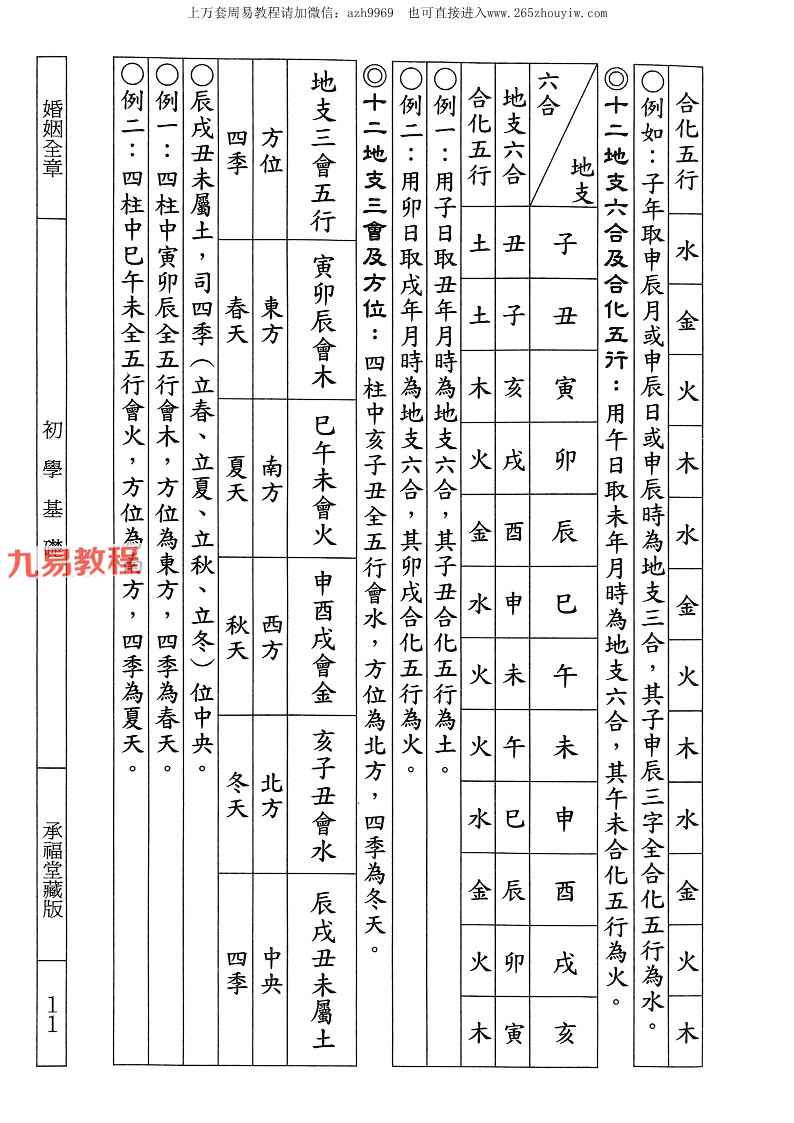 上万套周易教程请加微信：azh9969　也可直接进入www.265zhouyiw.com
合化五行 水 金 火 木 水 金 火 木 水 金 火 木
○例如：子年取申辰月或申辰日或申辰時為地支三合，其子申辰三字全合化五行為水。
◎十二地支六合及合化五行：用午日取未年月時為地支六合，其午未合化五行為火。
地支 六合 子 丑 寅 卯 辰 巳 午 未 申 酉 戌 亥
地支六合 丑 子 亥 戌 酉 申 未 午 巳 辰 卯 寅
合化五行 土 土 木 火 金 水 火 火 水 金 火 木
○例一：用子日取丑年月時為地支六合，其子丑合化五行為土。
○例二：用卯日取戌年月時為地支六合，其卯戌合化五行為火。
◎十二地支三會及方位：四柱中亥子丑全五行會水，方位為北方，四季為冬天。
地支三會五行 寅卯辰會木 巳午未會火 申酉戌會金 亥子丑會水 辰戌丑未屬土
方位 東方 南方 西方 北方 中央
四季 春天 夏天 秋天 冬天 四季
○辰戌丑未屬土，司四季（立春、立夏、立秋、立冬）位中央。
○例一：四柱中寅卯辰全五行會木，方位為東方，四季為春天。
○例二：四柱中巳午未全五行會火，方位為方，四季為夏天。
婚姻全章
初學基礎
承福堂藏版
11
九易教程